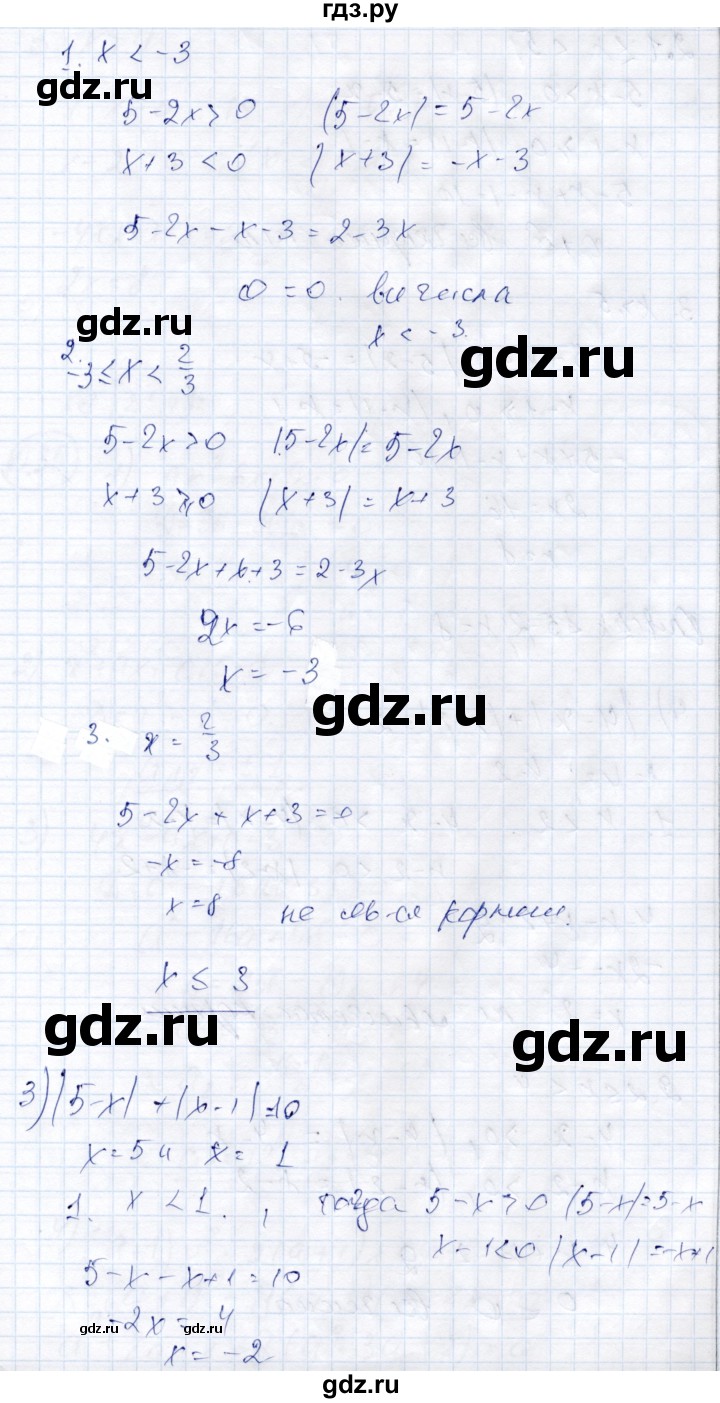 гдз.ру
1. x < -3
gdz.ru
5-2x > 0 |5-2x| = 5-2x
x+3 < 0 |x+3| = -x-3
5-2x-x-3 = 2-3x
0 = 0. все числа
x < -3.
gdz.ru
gdz.ru
2. -3 ≤ x < 2/3
5-2x > 0 |5-2x| = 5-2x
x+3 ≥ 0 |x+3| = x+3
5-2x+x+3 = 2-3x
2x = -6
x = -3
gdz.ru
3. x = 2/3
5-2x+x+3 = 0
-x = -8
x = 8 не яв-ся корнем.
x ≤ 3
gdz.ru
gdz.ru
3) |5-x| + |x-1| = 10
x = 5 и x = 1
1. x < 1. , тогда 5-x > 0 |5-x| = 5-x
x-1 < 0 |x-1| = -x+1
5-x-x+1 = 10
-2x = 4
gdz.ru gdz.ru
x = -2
gdz.ru